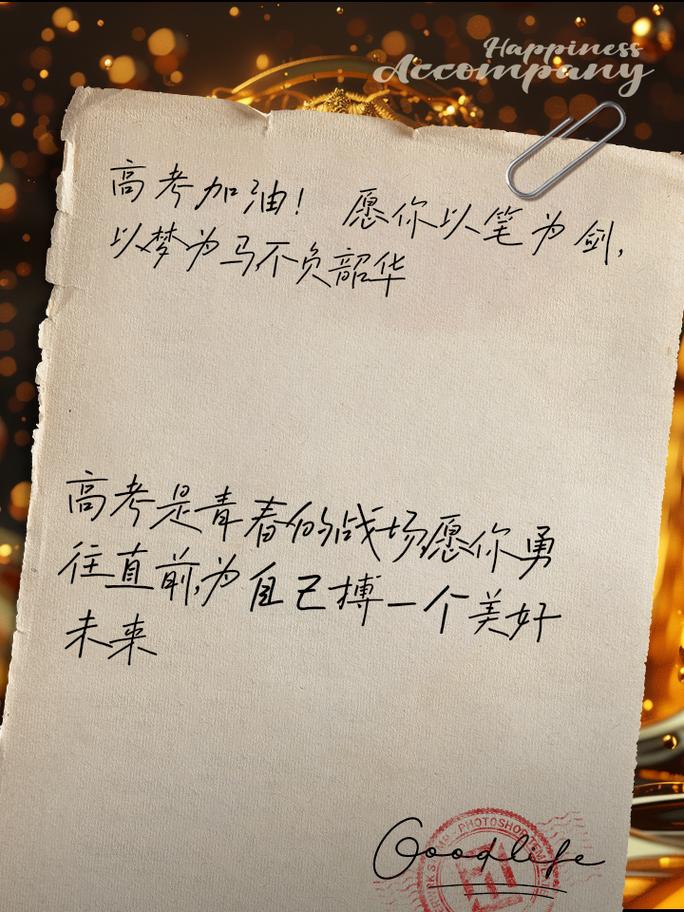 Happiness
Accompany
高考加油！ 愿你以笔为剑，
以梦为马不负韶华
高考是青春的战场愿你勇
往直前，为自己搏一个美好
未来
PHOTOSHOP
Goodlife